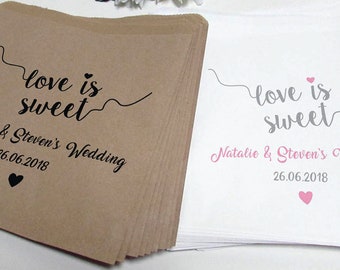 love is
sweet
& Steven's Wedding
26.06.2018
love is
sweet
Natalie & Steven's
26.06.2018